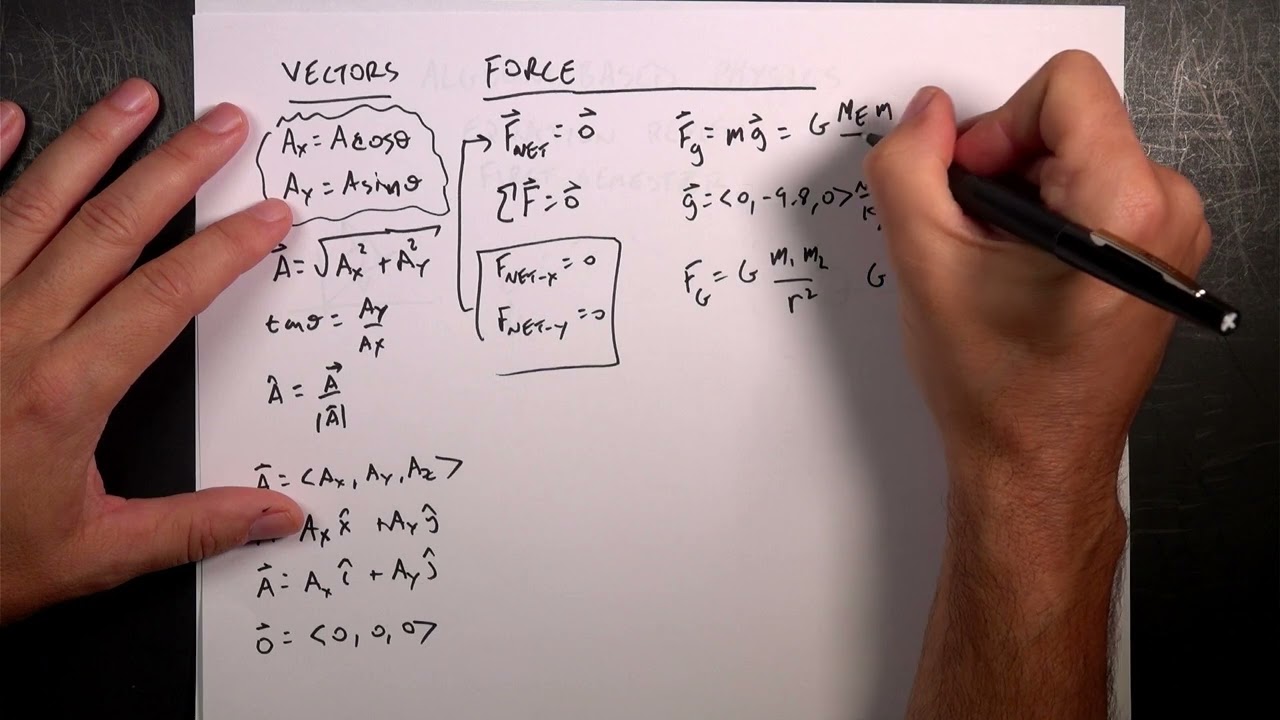 VECTORS
Aₓ = A cosθ
A_y = A sinθ
A⃗ = √(Aₓ² + A_y²)
tanθ = A_y / Aₓ
Â = A⃗ / |A⃗|
A⃗ = <Aₓ, A_y, A_z>
Aₓ x̂ + A_y ŷ
A⃗ = Aₓ î + A_y ĵ
0⃗ = <0, 0, 0>
FORCE
F⃗_NET = 0⃗
ΣF⃗ = 0⃗
F_NET-x = 0
F_NET-y = 0
F⃗_g = mg⃗ = G M_E m
g⃗ = <0, -9.8, 0> N/K
F⃗_G = G m₁ m₂ / r²
G